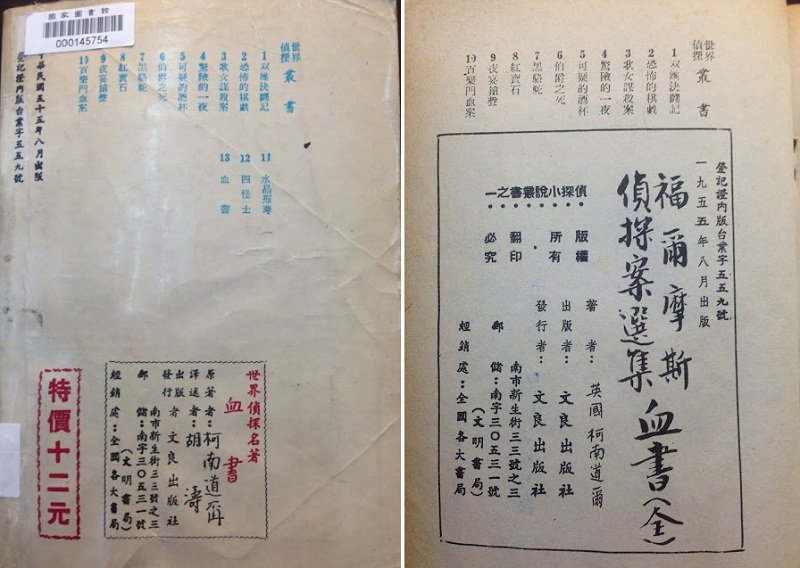 國家圖書館
000145754
世界
偵探
叢書
1 双雄決鬪記
2 恐怖的棋戲
3 歌女謀殺案
4 驚險的一夜
5 可疑的酒杯
6 伯爵之死
7 黑駱駝
8 紅寶石
9 夜宴槍聲
10 百樂門血案
11 水晶瓶塞
12 四怪士
13 血書
華民國五十五年八月出版
登記證內版台業字五五九號
世界偵探名著
血書
原著者：柯南道爾
譯述者：胡濤
出版者
發行
文良出版社
南市新生街三三號之三
郵儲：南字三〇五三一號
（文明書局）
經銷處：全國各大書局
特價十二元
世界
偵探
叢書
1 双雄決鬪記
2 恐怖的棋戲
3 歌女謀殺案
4 驚險的一夜
5 可疑的酒杯
6 伯爵之死
7 黑駱駝
8 紅寶石
9 夜宴槍聲
10 百樂門血案
登記證內版台業字五五九號
一九五五年八月出版
福爾摩斯
偵探案選集
血書（全）
偵探小說叢書之一
版權
所有
翻印
必究
著者：英國柯南道爾
出版者：文良出版社
發行者：文良出版社
南市新生街三三號之三
郵儲：南字三〇五三一號
（文明書局）
經銷處：全國各大書局